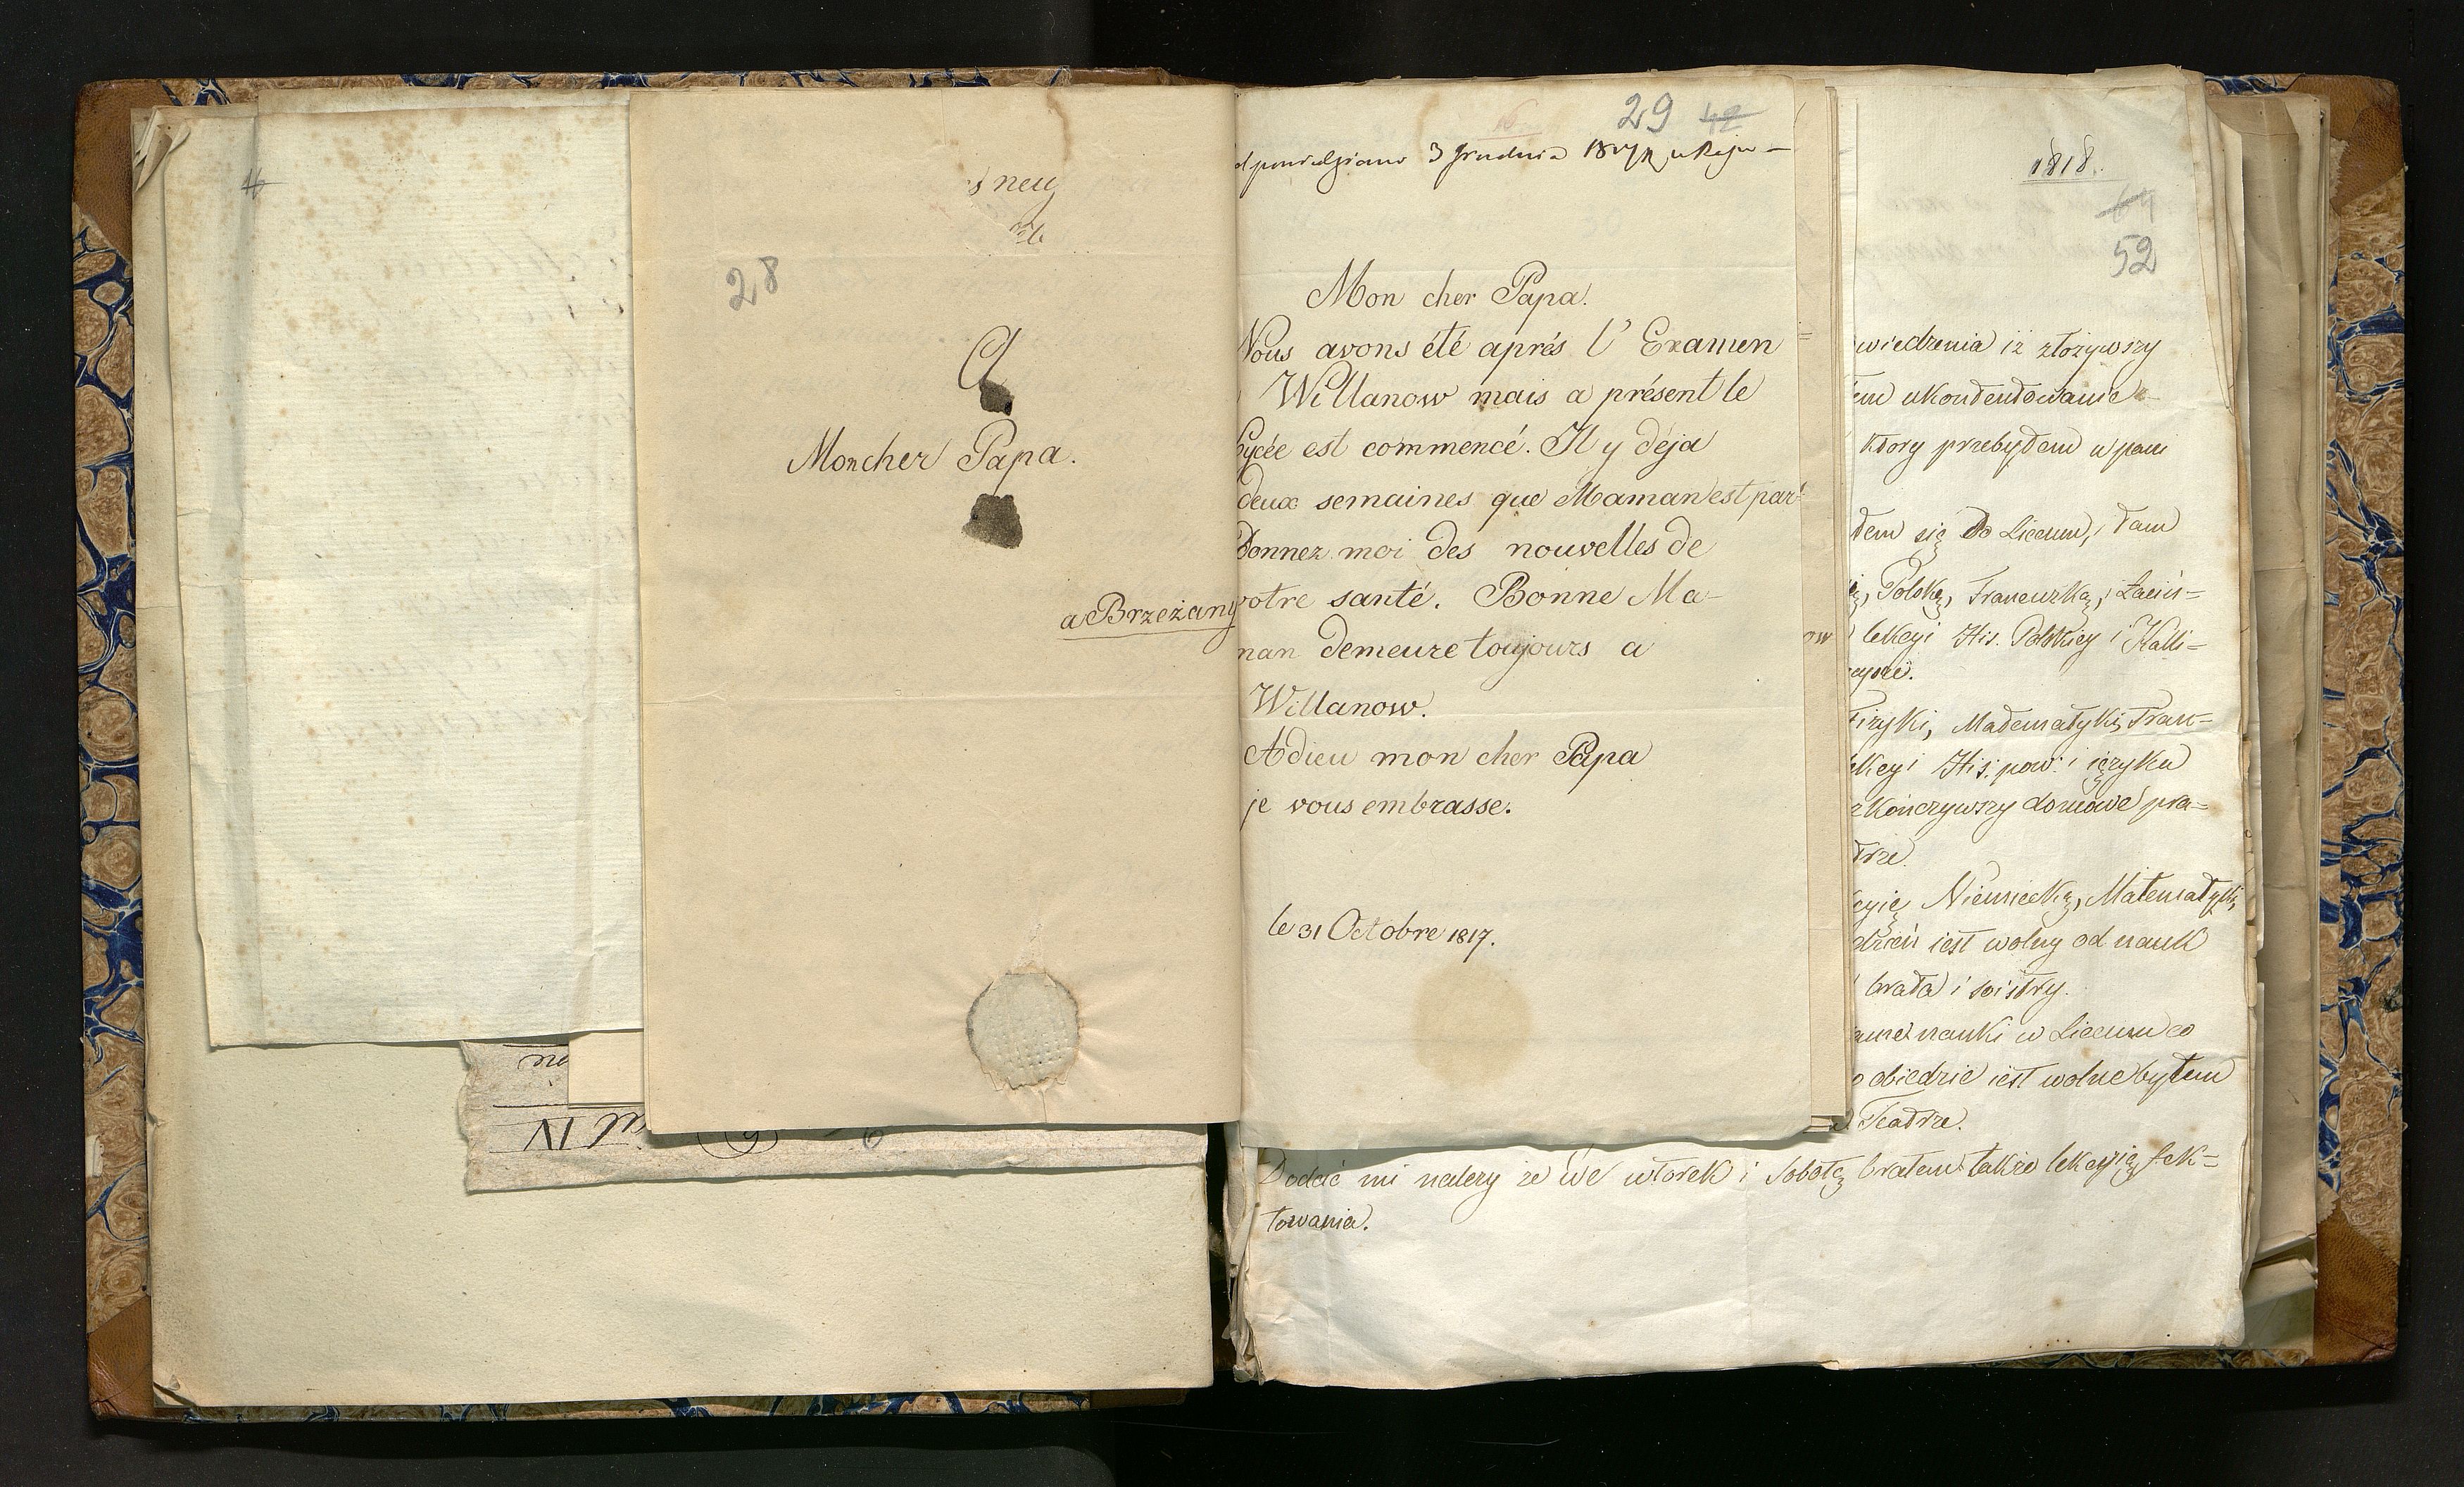 28
A
Mon cher Papa.
a Brzeżany
29 42
3 Grudnia 1817
Mon cher Papa.
Nous avons été aprés l'Examen
Willanow mais a présent le
Lycée est commencé. Il y déja
deux semaines que Maman est par
Donnez moi des nouvelles de
votre santé. Bonne Ma-
man demeure toujours a
Willanow.
Adieu mon cher Papa
je vous embrasse.
le 31 Octobre 1817.
1818.
64
52
wiedzenia iż złożywszy
ukontentowanie
ktory przebyłem w
łem się do Liceum, i tam
Polską, Francuzką, i Łaciń=
lekcyi His. Polskiey i Kalli=
Fizyki, Matematyki, Fran=
His. pow. i ięzyku
zkończywszy domowe pra=
Niemiecką, Matematyki,
dzień iest wolny od nauk
brata i siostry.
nauki w Liceum co
obiedzie iest wolne byłem
Teatrze.
Dodać mi należy że we wtorek i Sobotę brałem także lekcyię fek=
towania.